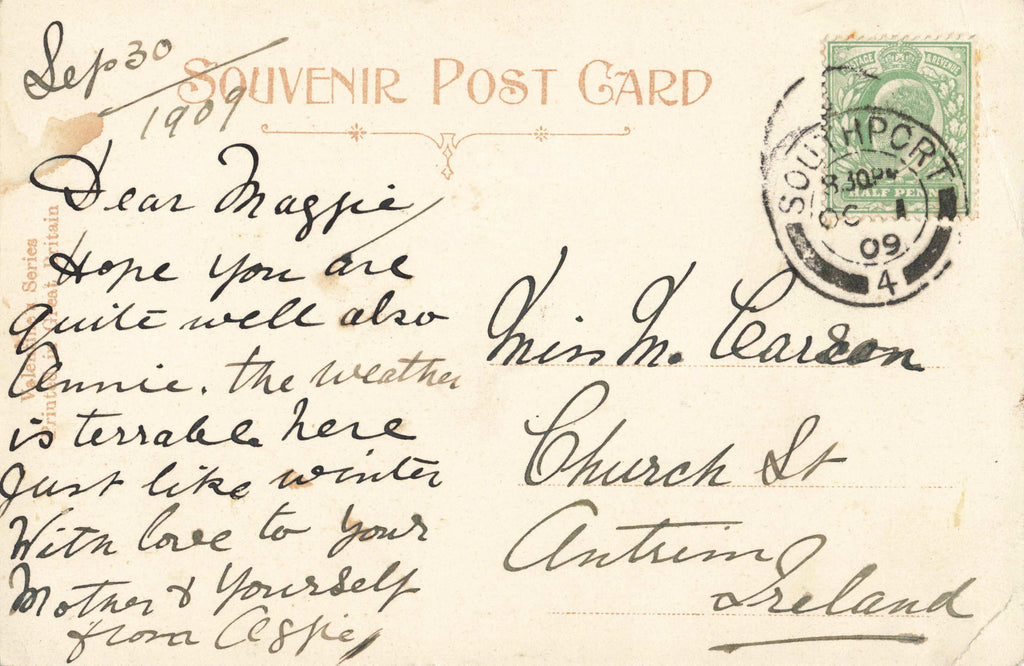 Sep 30
1909
SOUVENIR POST CARD
Dear Maggie
Hope you are
quite well also
Annie. the weather
is terrable here
Just like winter
With love to your
Mother & Yourself
from Aggie
Valentine's Series
Printed in Great Britain
POSTAGE & REVENUE
HALF PENNY
SOUTHPORT
8.30PM
OC 1
09
4
Miss M. Carson
Church St
Antrim
Ireland